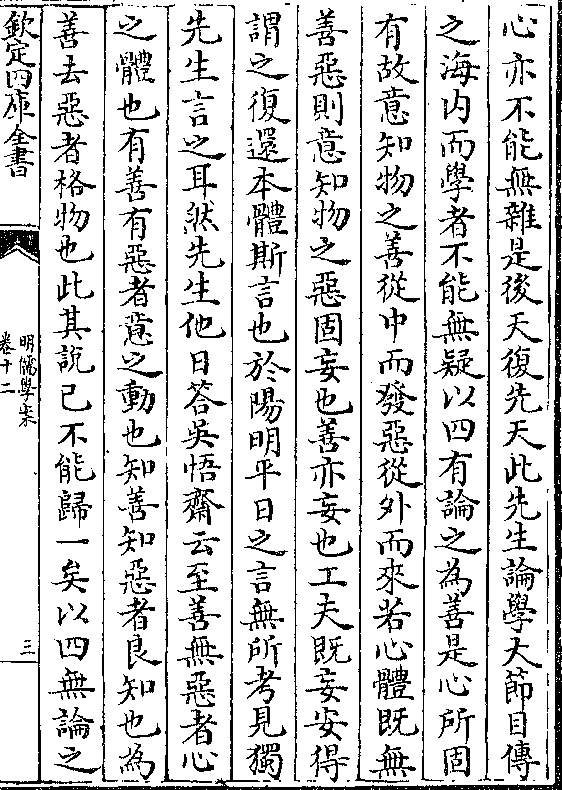 心亦不能無雜是後天復先天此先生論學大節目傳
之海内而學者不能無疑以四有論之為善是心所固
有故意知物之善從中而發惡從外而來若心體既無
善惡則意知物之惡固妄也善亦妄也工夫既妄安得
謂之復還本體斯言也於陽明平日之言無所考見獨
先生言之耳然先生他日答吳悟齋云至善無惡者心
之體也有善有惡者意之動也知善知惡者良知也為
善去惡者格物也此其說已不能歸一矣以四無論之
欽定四庫全書
明儒學案
卷十二
三